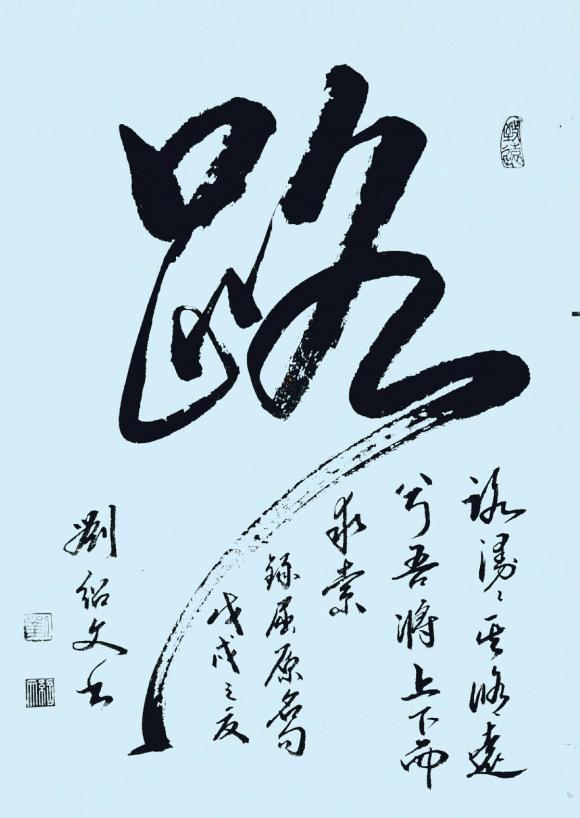 路
路漫々其修遠
兮吾將上下而
求索
錄屈原名句
戊戌之夏
劉紹文书
致遠